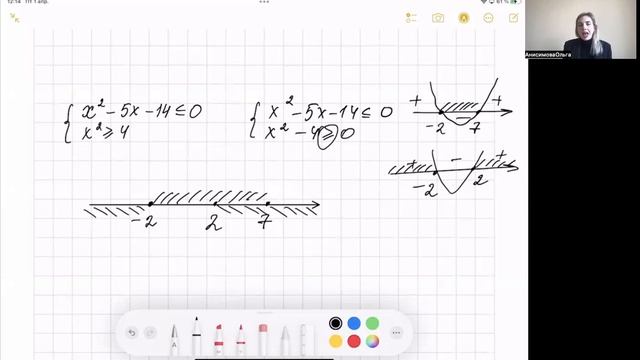 12:14 Пт 1 апр.
61 %
АнисимоваОльга
{ x² − 5x − 14 ≤ 0
x² ⩾ 4
{ x² − 5x − 14 ≤ 0
x² − 4 ⩾ 0
+ − +
−2 7
+ − +
−2 2
−2 2 7
A